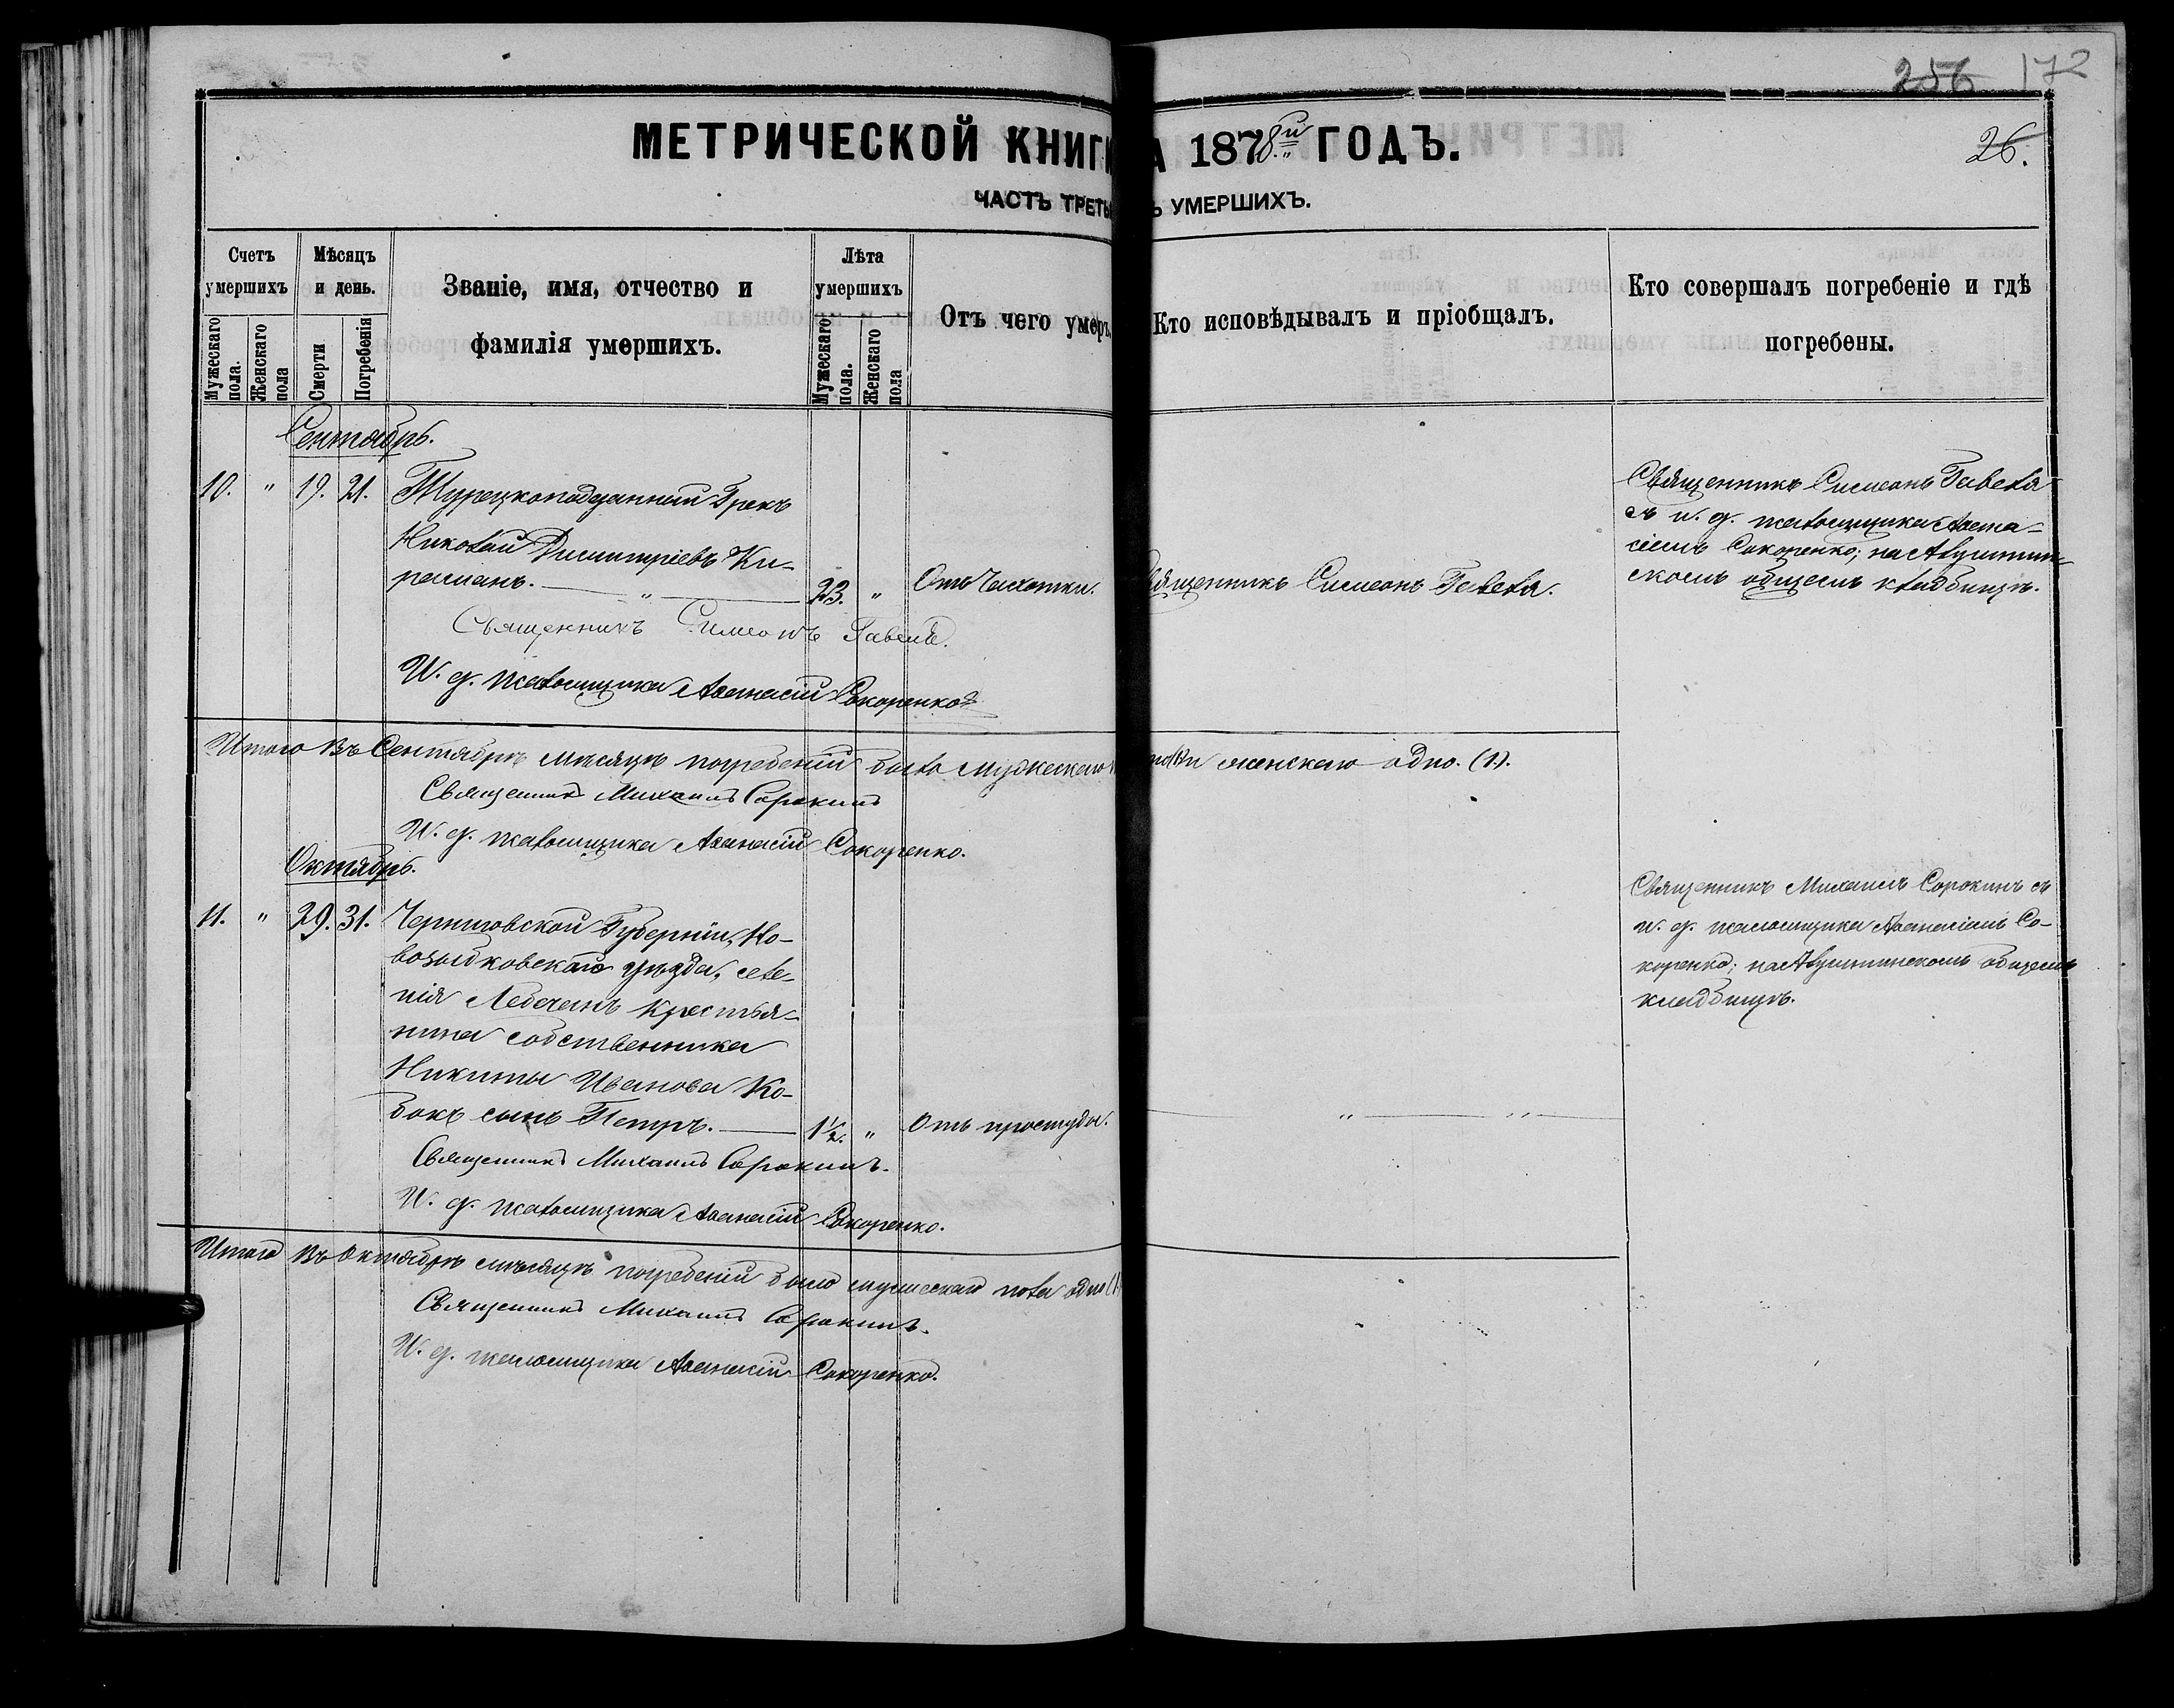 256 172
МЕТРИЧЕСКОЙ КНИГИ
А 1878й ГОДЪ.
26.
ЧАСТЬ ТРЕТЬ
Ъ УМЕРШИХЪ.
Счетъ умершихъ
Мужескаго пола.
Женскаго пола
Мѣсяцъ и день.
Смерти
Погребенія
Званіе, имя, отчество и
фамилія умершихъ.
Лѣта умершихъ
Мужескаго пола.
Женскаго пола
Отъ чего умеръ.
Кто исповѣдывалъ и пріобщалъ.
Кто совершалъ погребеніе и гдѣ
погребены.
Сентябрь.
10. " 19. 21. Турецкоподданный Грекъ
Николай Димитріевъ Ки-
ресианъ. " 23. " Отъ Чахотки.
Священникъ Симеонъ Гавела.
Священникъ Симеонъ Гавела
съ и. д. псаломщика Афана-
сіемъ Сокоренко; на Алуштин-
скомъ общемъ кладбищѣ.
Священникъ Симеонъ Гавела.
И. д. псаломщика Афанасій Сокоренко
Итого въ Сентябрѣ мѣсяцѣ погребеній было мужескаго
женскаго одно. (1).
Священникъ Михаилъ Сорокинъ
И. д. псаломщика Афанасій Сокоренко.
Октябрь.
11. " 29. 31. Черниговской Губерніи, Но-
возыбковскаго уѣзда, селе-
нія Лебечанъ крестья-
нина собственника
Никиты Иванова Ко-
бокъ сынъ Петръ. 1½. " Отъ простуды.
" "
Священникъ Михаилъ Сорокинъ съ
и. д. псаломщика Афанасіемъ Со-
коренко; на Алуштинскомъ общемъ
кладбищѣ.
Священникъ Михаилъ Сорокинъ.
И. д. псаломщика Афанасій Сокоренко.
Итого въ Октябрѣ мѣсяцѣ погребеній было мужескаго пола одно (1
Священникъ Михаилъ Сорокинъ.
И. д. псаломщика Афанасій Сокоренко.